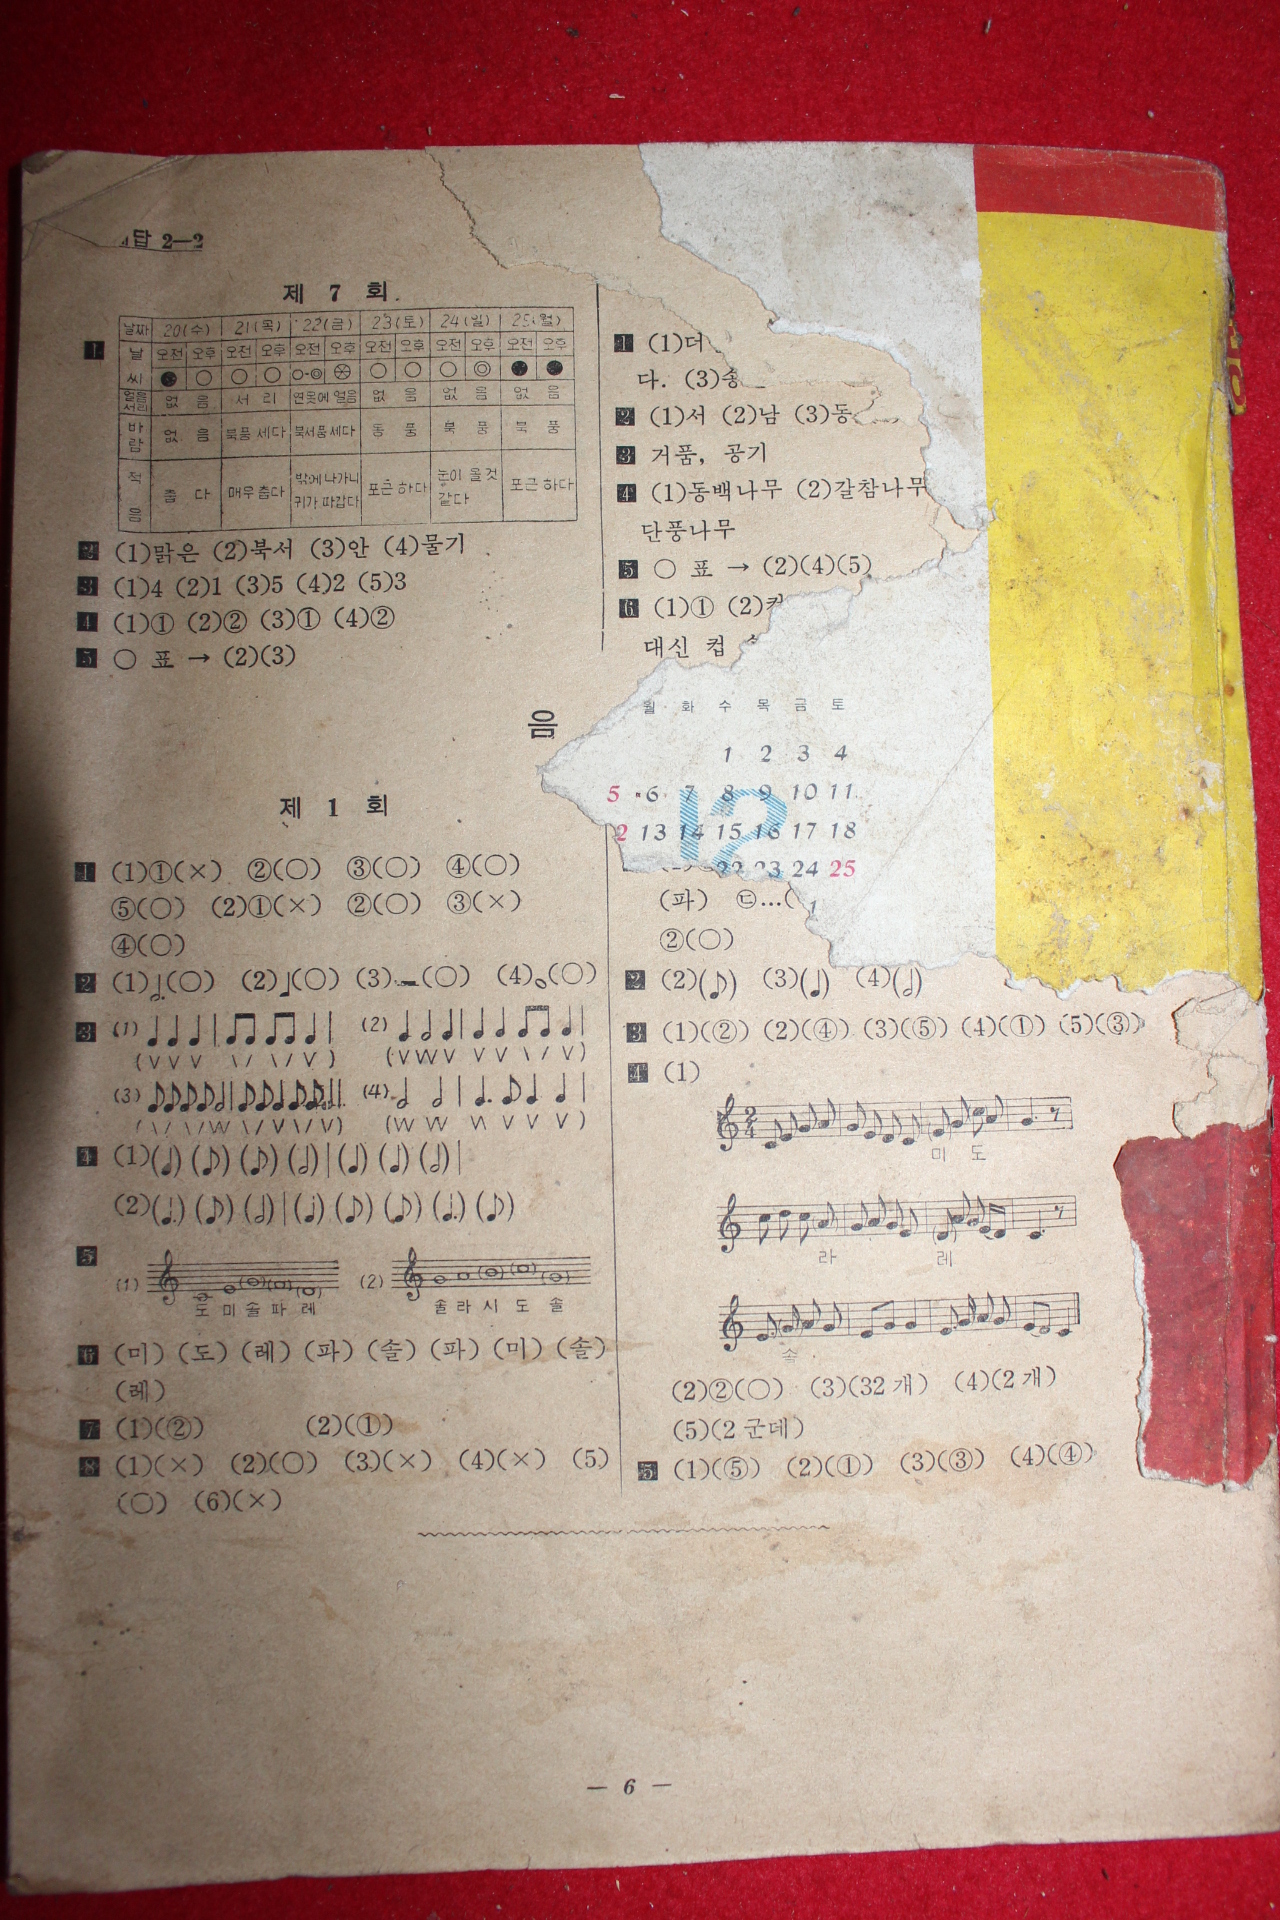 답 2—2
제 7 회
날짜 20(수) 21(목) 22(금) 23(토) 24(일) 25(월)
날씨 오전 오후 오전 오후 오전 오후 오전 오후 오전 오후 오전 오후
얼음 서리 없음 서리 연못에 얼음 없음 없음 없음
바람 없음 북풍 세다 북서풍 세다 동풍 북풍 북풍
적음 춥다 매우 춥다 밖에 나가니 귀가 따갑다 포근 하다 눈이 올것 같다 포근 하다
2 (1)맑은 (2)북서 (3)안 (4)물기
3 (1)4 (2)1 (3)5 (4)2 (5)3
4 (1)① (2)② (3)① (4)②
5 ○ 표 → (2)(3)
1 (1)더
다. (3)송
2 (1)서 (2)남 (3)동
3 거품, 공기
4 (1)동백나무 (2)갈참나무
단풍나무
5 ○ 표 → (2)(4)(5)
6 (1)① (2)
대신 컵
음
월 화 수 목 금 토
1 2 3 4
5 6 7 8 9 10 11
12
2 13 14 15 16 17 18
22 23 24 25
제 1 회
1 (1)①(×) ②(○) ③(○) ④(○)
⑤(○) (2)①(×) ②(○) ③(×)
④(○)
2 (1)𝅗𝅥.(○) (2)♩(○) (3)𝄼(○) (4)𝅝(○)
3 (1) (2)
(3) (4)
4 (1)(♩) (♪) (♪) (𝅗𝅥) | (♩) (♩) (𝅗𝅥) |
(2)(♩.) (♪) (𝅗𝅥) | (♩.) (♪) (♪) (♩.) (♪)
5 (1) 도 미 솔 파 레 (2) 솔 라 시 도 솔
6 (미) (도) (레) (파) (솔) (파) (미) (솔)
(레)
7 (1)(②) (2)(①)
8 (1)(×) (2)(○) (3)(×) (4)(×) (5)
(○) (6)(×)
(파) ㉢…(
②(○)
2 (2)(♪) (3)(♩) (4)(𝅗𝅥)
3 (1)(②) (2)(④) (3)(⑤) (4)(①) (5)(③)
4 (1)
2 4
미 도
라 레
솔
(2)②(○) (3)(32 개) (4)(2 개)
(5)(2 군데)
5 (1)(⑤) (2)(①) (3)(③) (4)(④)
— 6 —